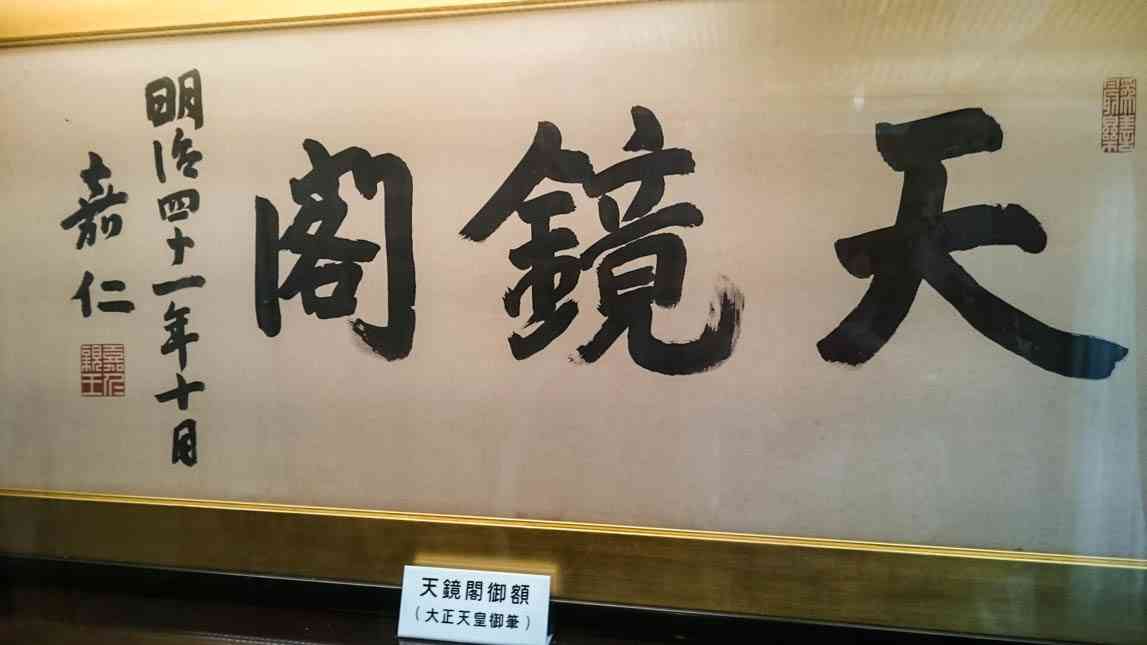 天鏡閣
明治四十一年十月
嘉仁
嘉仁
親王
天鏡閣御額
(大正天皇御筆)